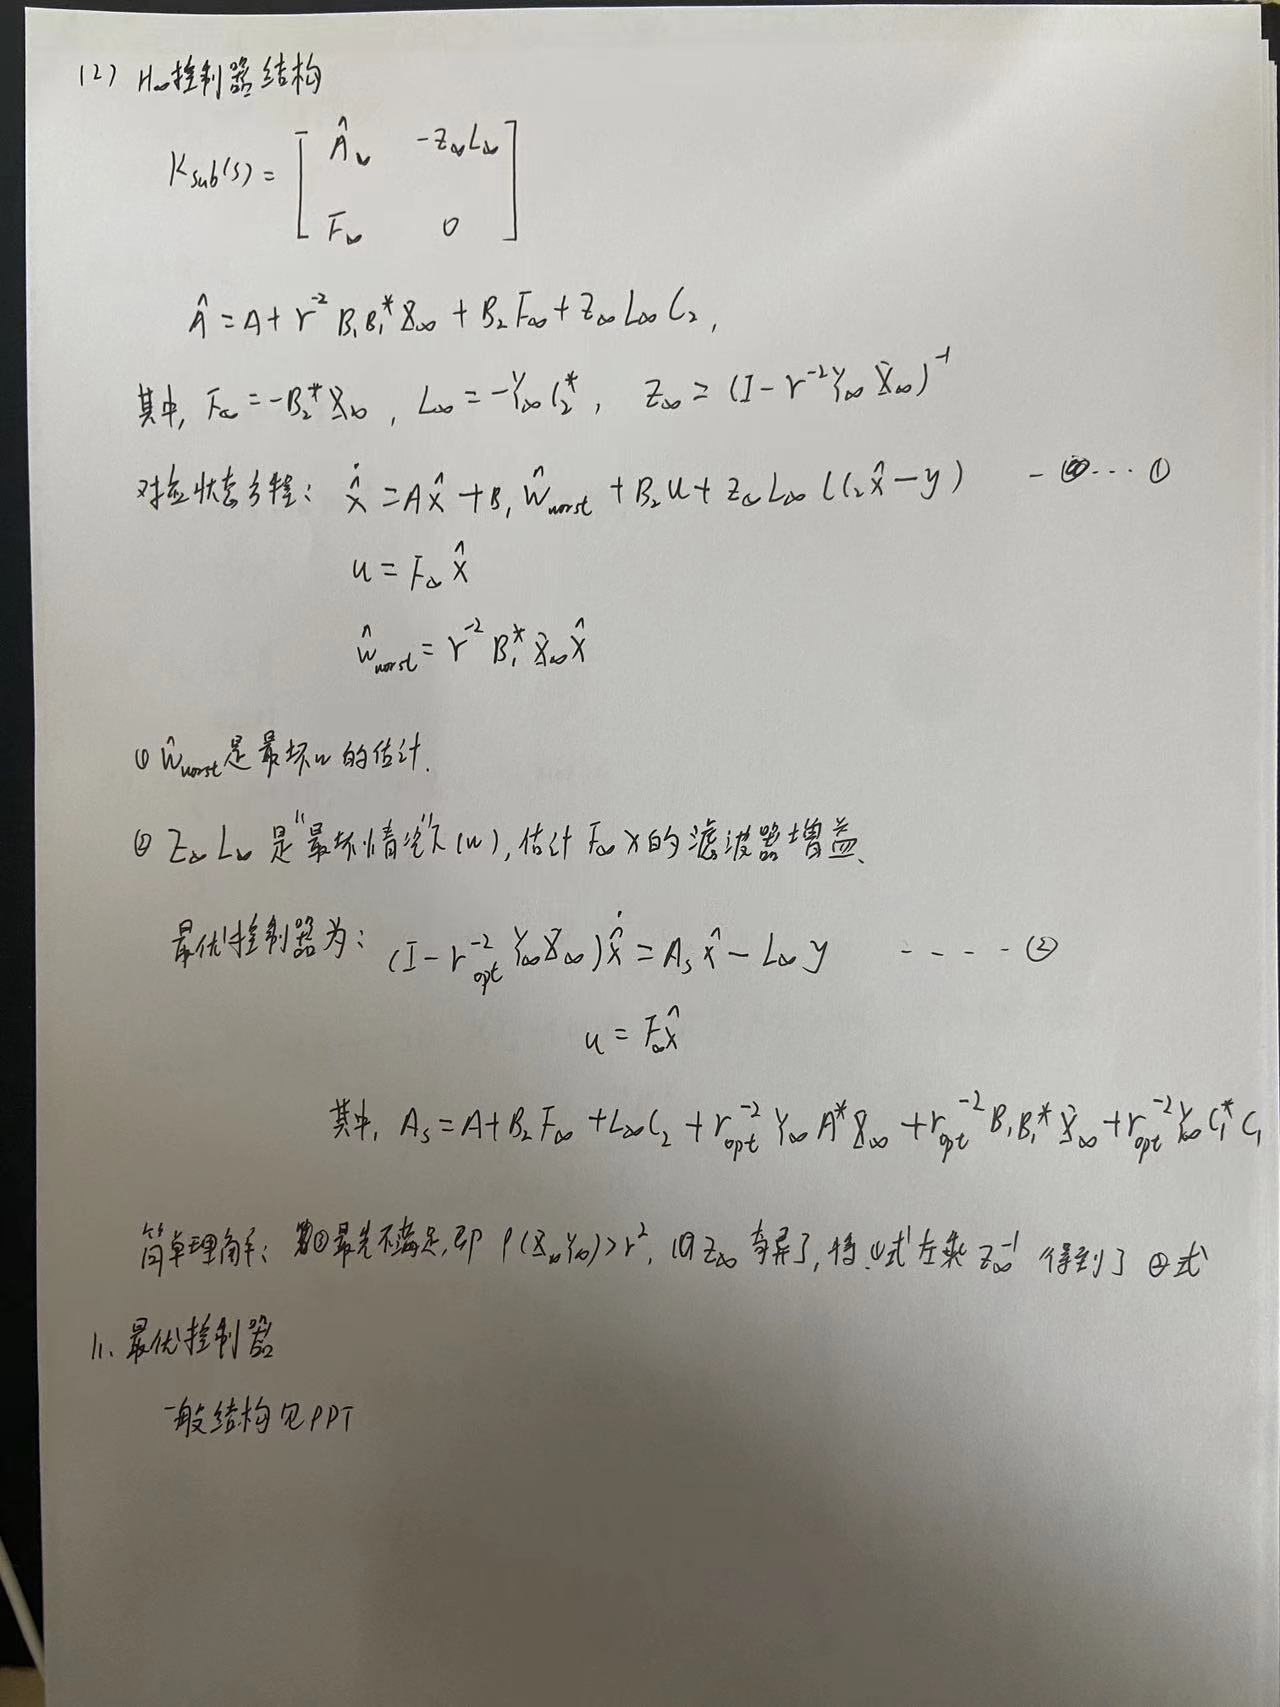 (2) H∞控制器结构
Ksub(s) = [ Â∞ -Z∞L∞
F∞ 0 ]
Â = A + r⁻² B₁B₁* X∞ + B₂F∞ + Z∞L∞C₂,
其中, F∞ = -B₂*X∞, L∞ = -Y∞C₂*, Z∞ = (I - r⁻²Y∞X∞)⁻¹
对应状态方程: x̂̇ = Ax̂ + B₁ŵworst + B₂u + Z∞L∞(C₂x̂ - y) - ... ①
u = F∞x̂
ŵworst = r⁻² B₁* X∞x̂
① ŵworst是最坏w的估计.
② Z∞L∞ 是"最坏情况"下(w), 估计 F∞x 的滤波器增益.
最优控制器为: (I - ropt⁻² Y∞X∞)x̂̇ = Asx̂ - L∞y ---- ②
u = F∞x̂
其中, As = A + B₂F∞ + L∞C₂ + ropt⁻² Y∞A*X∞ + ropt⁻² B₁B₁*X∞ + ropt⁻² Y∞C₁*C₁
简单理解: 第③最先不满足, 即 ρ(X∞Y∞) > r², 则Z∞ 奇异了, 将①式左乘 Z∞⁻¹ 得到了②式
11. 最优控制器
一般结构见PPT